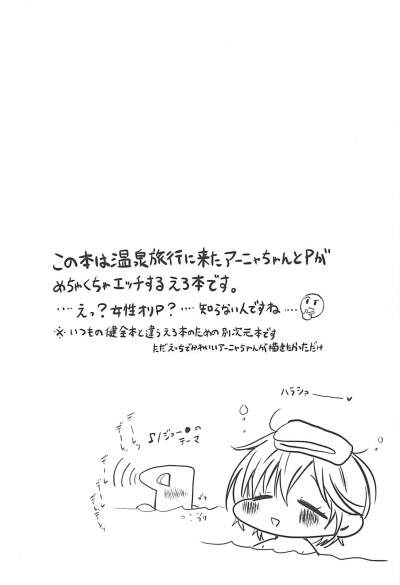 この本は温泉旅行に来たアーニャちゃんとPが
めちゃくちゃエッチするえろ本です。
‥‥えっ？女性オリP？‥‥知らない人ですね‥‥
※いつもの健全本と違うえろ本のための別次元本です
ただえっちでかわいいアーニャちゃんが描きたかっただけ
ハラショー
S/ジョー●の
テーマ
デーデッ
デーデッ
デーデッ
デーデッ